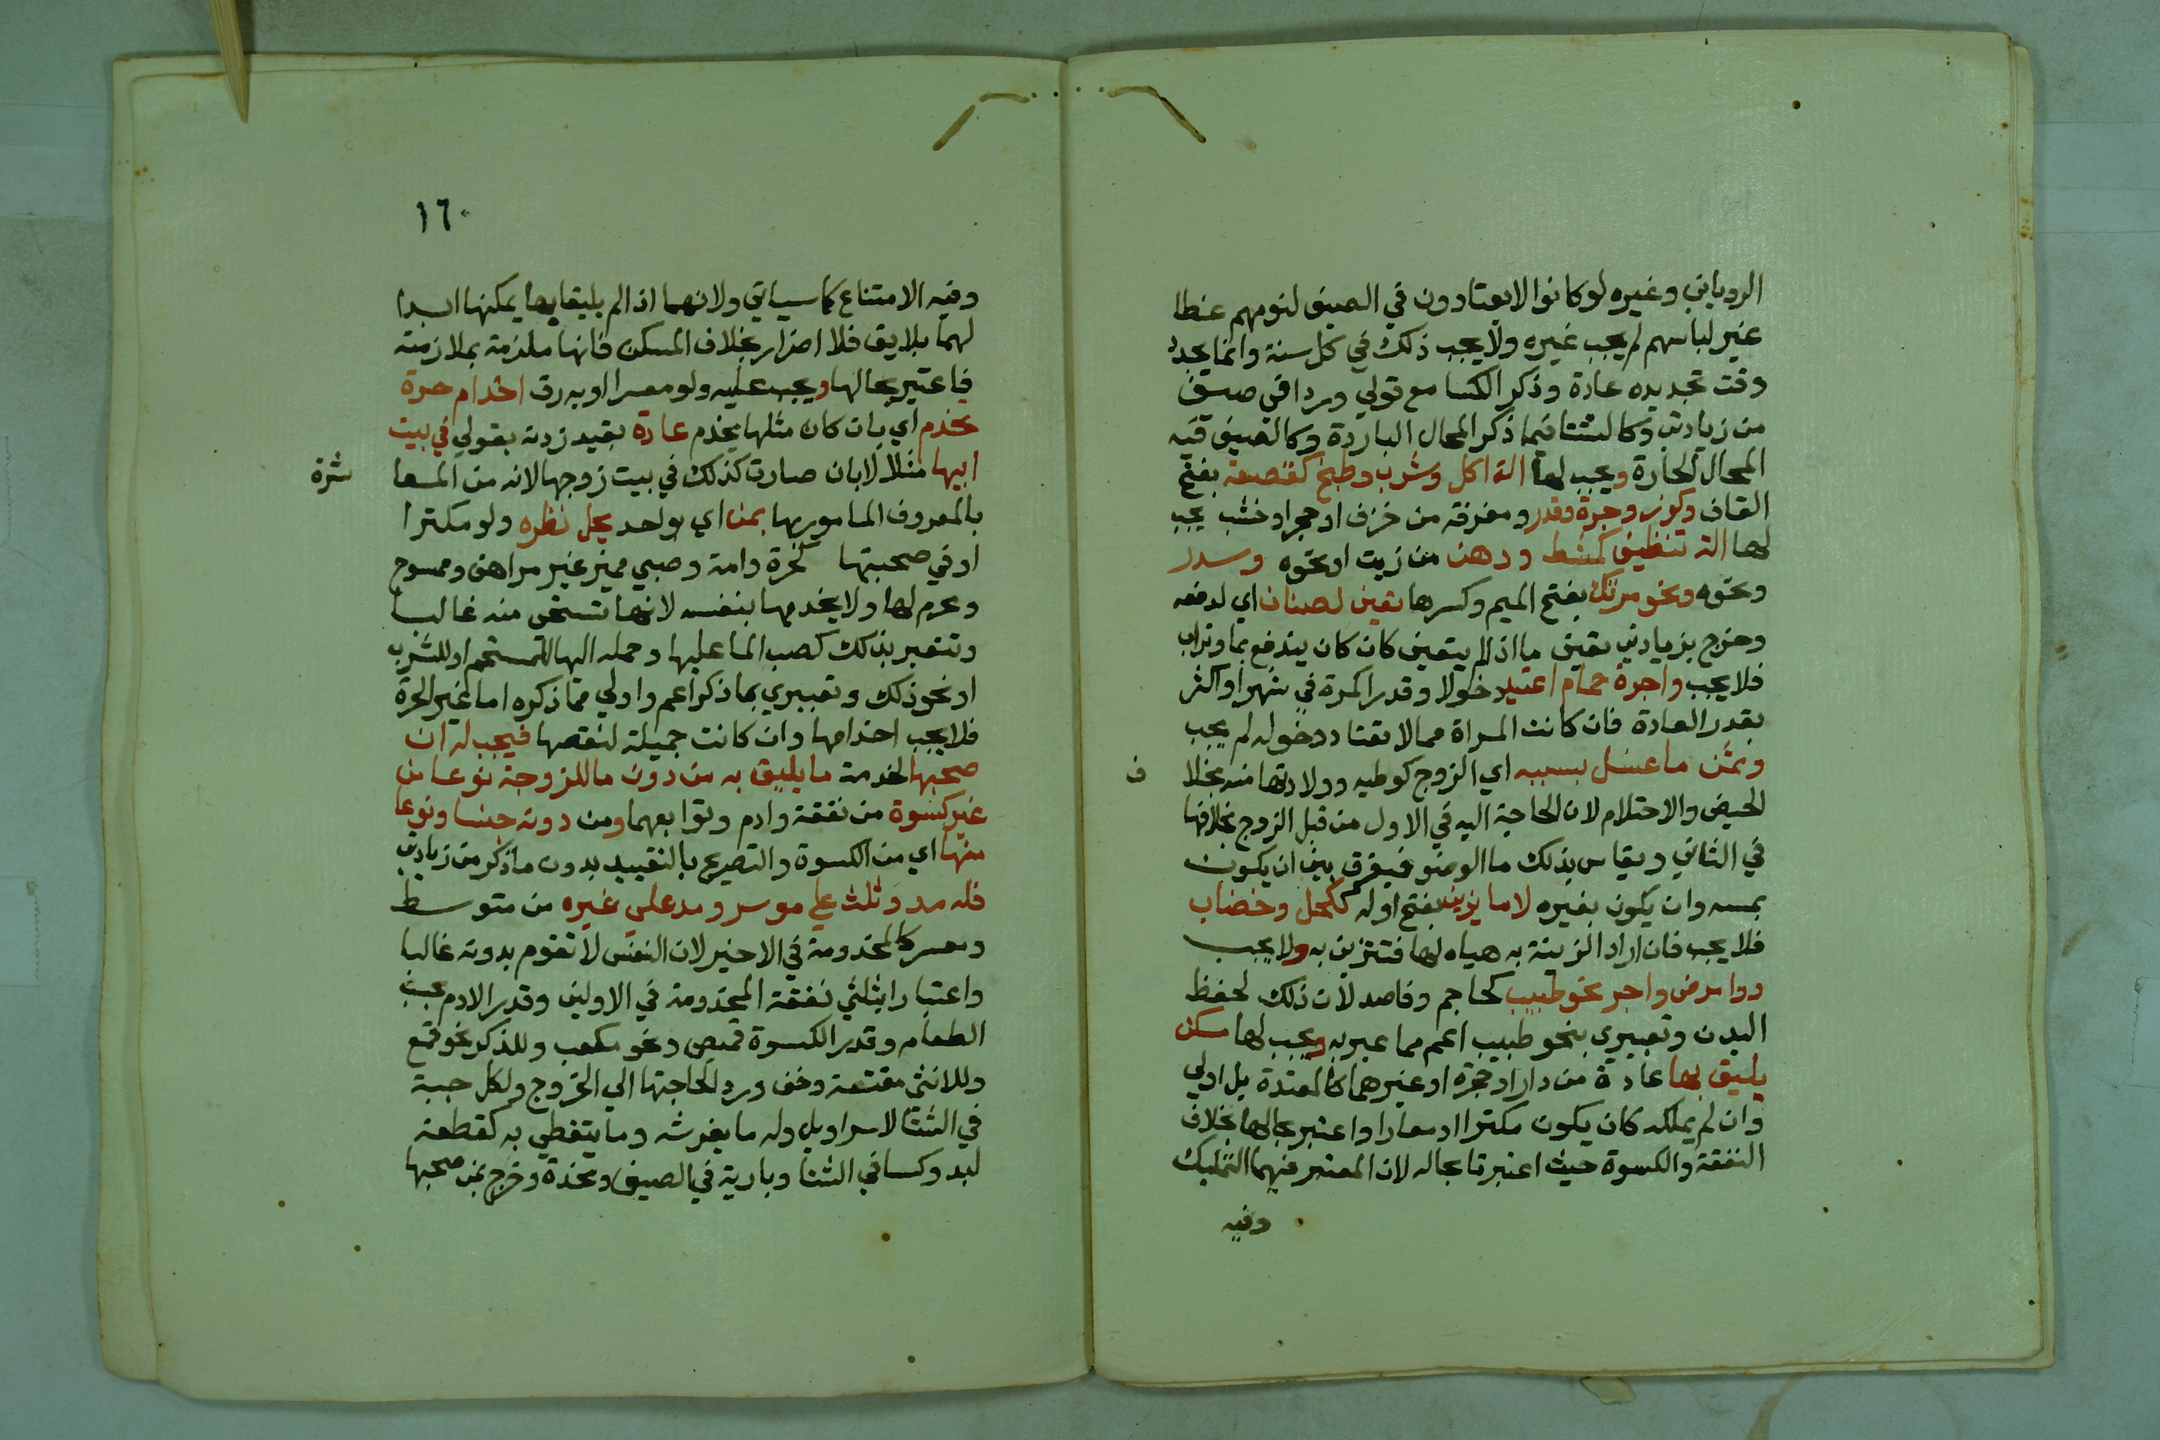 الروياني وغيره لو كانوا لا يعتادون في الصيف لنومهم غطا
غير لباسهم لم يجب غيره ولا يجب ذلك في كل سنة وانما يجدد
وقت تجديده عادة وذكر الكسا مع قولي وردا في صيف
من زيادتي وكالشتا فيما ذكر المحال الباردة وكالصيف فيه
المحال الحارة ويجب لها الة اكل وشرب وطبخ كقصعة بفتح
القاف وكوز وجرة وقدر ومغرفة من خزف او حجر او خشب يجب
لها الة تنظيف كمشط ودهن من زيت او نحوه وسدر
ونحوه ونحو مرتك بفتح الميم وكسرها تعين لصنان اي لدفعه
وخرج بزيادتي تعين ما اذا لم يتعين كان كان يندفع بما وتراب
فلا يجب واجرة حمام اعتيد دخولا وقدرا كمرة في شهر او اكثر
بقدر العادة فان كانت المراة ممن لا تعتاد دخوله لم يجب
وثمن ما غسل بسببه اي الزوج كوطيه وولادتها منه بخلا
ف
الحيض والاحتلام لان الحاجة اليه في الاول من قبل الزوج بخلافها
في الثاني ويقاس بذلك ما الوضو فيفرق بين ان يكون
بمسه وان يكون بغيره لا ما يزين بفتح اوله ككحل وخضاب
فلا يجب فان اراد الزينة به هياه لها فتتزين به ولا يجب
دوا مرض واجر نحو طبيب كحاجم وفاصد لان ذلك لحفظ
البدن وتعبيري بنحو طبيب اعم مما عبر به ويجب لها مسكن
يليق بها عادة من دار او حجرة او غيرهما كالمعتدة بل اولي
وان لم يملكه كان يكون مكترا او معارا واعتبر بحالها بخلاف
النفقة والكسوة حيث اعتبرتا بحاله لان المعتبر فيهما التمليك
وفيه
١٦٠
وفيه الامتناع كما سياتي ولانهما اذا لم يليقا بها يمكنها ابدا
لهما بلايق فلا اضرار بخلاف المسكن فانها ملزمة بملازمته
فاعتبر بحالها ويجب عليه ولو معسرا او به رق اخدام حرة
تخدم اي بان كان مثلها يخدم عادة بقيد زدته بقولي في بيت
ابيها مثلا لا بان صارت كذلك في بيت زوجها لانه من المعا
شرة
بالمعروف المامور بها بمن اي بواحد يحل نظره ولو مكترا
او في صحبتها كحرة وامة وصبي مميز غير مراهق وممسوح
ومحرم لها ولا يخدمها بنفسه لانها تستحي منه غالبا
وتتعير بذلك كصب الما عليها وحمله اليها للمستحم او للشرب
او نحو ذلك وتعبيري بما ذكر اعم واولي مما ذكره اما غير الحرة
فلا يجب اخدامها وان كانت جميلة لنقصها فيجب له ان
صحبها لخدمة ما يليق به من دون ما للزوجة نوعا من
غير كسوة من نفقة وادم وتوابعهما ومن دونه جنسا ونوعا
منها اي من الكسوة والتصريح بالتقييد بدون ما ذكر من زيادتي
فله مد وثلث علي موسر ومد علي غيره من متوسط
ومعسر كالمخدومة في الاخير لان النفس لا تقوم بدونه غالبا
واعتبارا بثلثي نفقة المخدومة في الاولين وقدر الادم بحسب
الطعام وقدر الكسوة قميص ونحو مكعب وللذكر نحو قمع
وللانثي مقنعة وخف وردا لحاجتها الي الخروج ولكل جبة
في الشتا لا سراويل وله ما يفرشه وما يتغطي به كقطعة
لبد وكسا في الشتا وبارية في الصيف ومخدة وخرج بمن صحبها